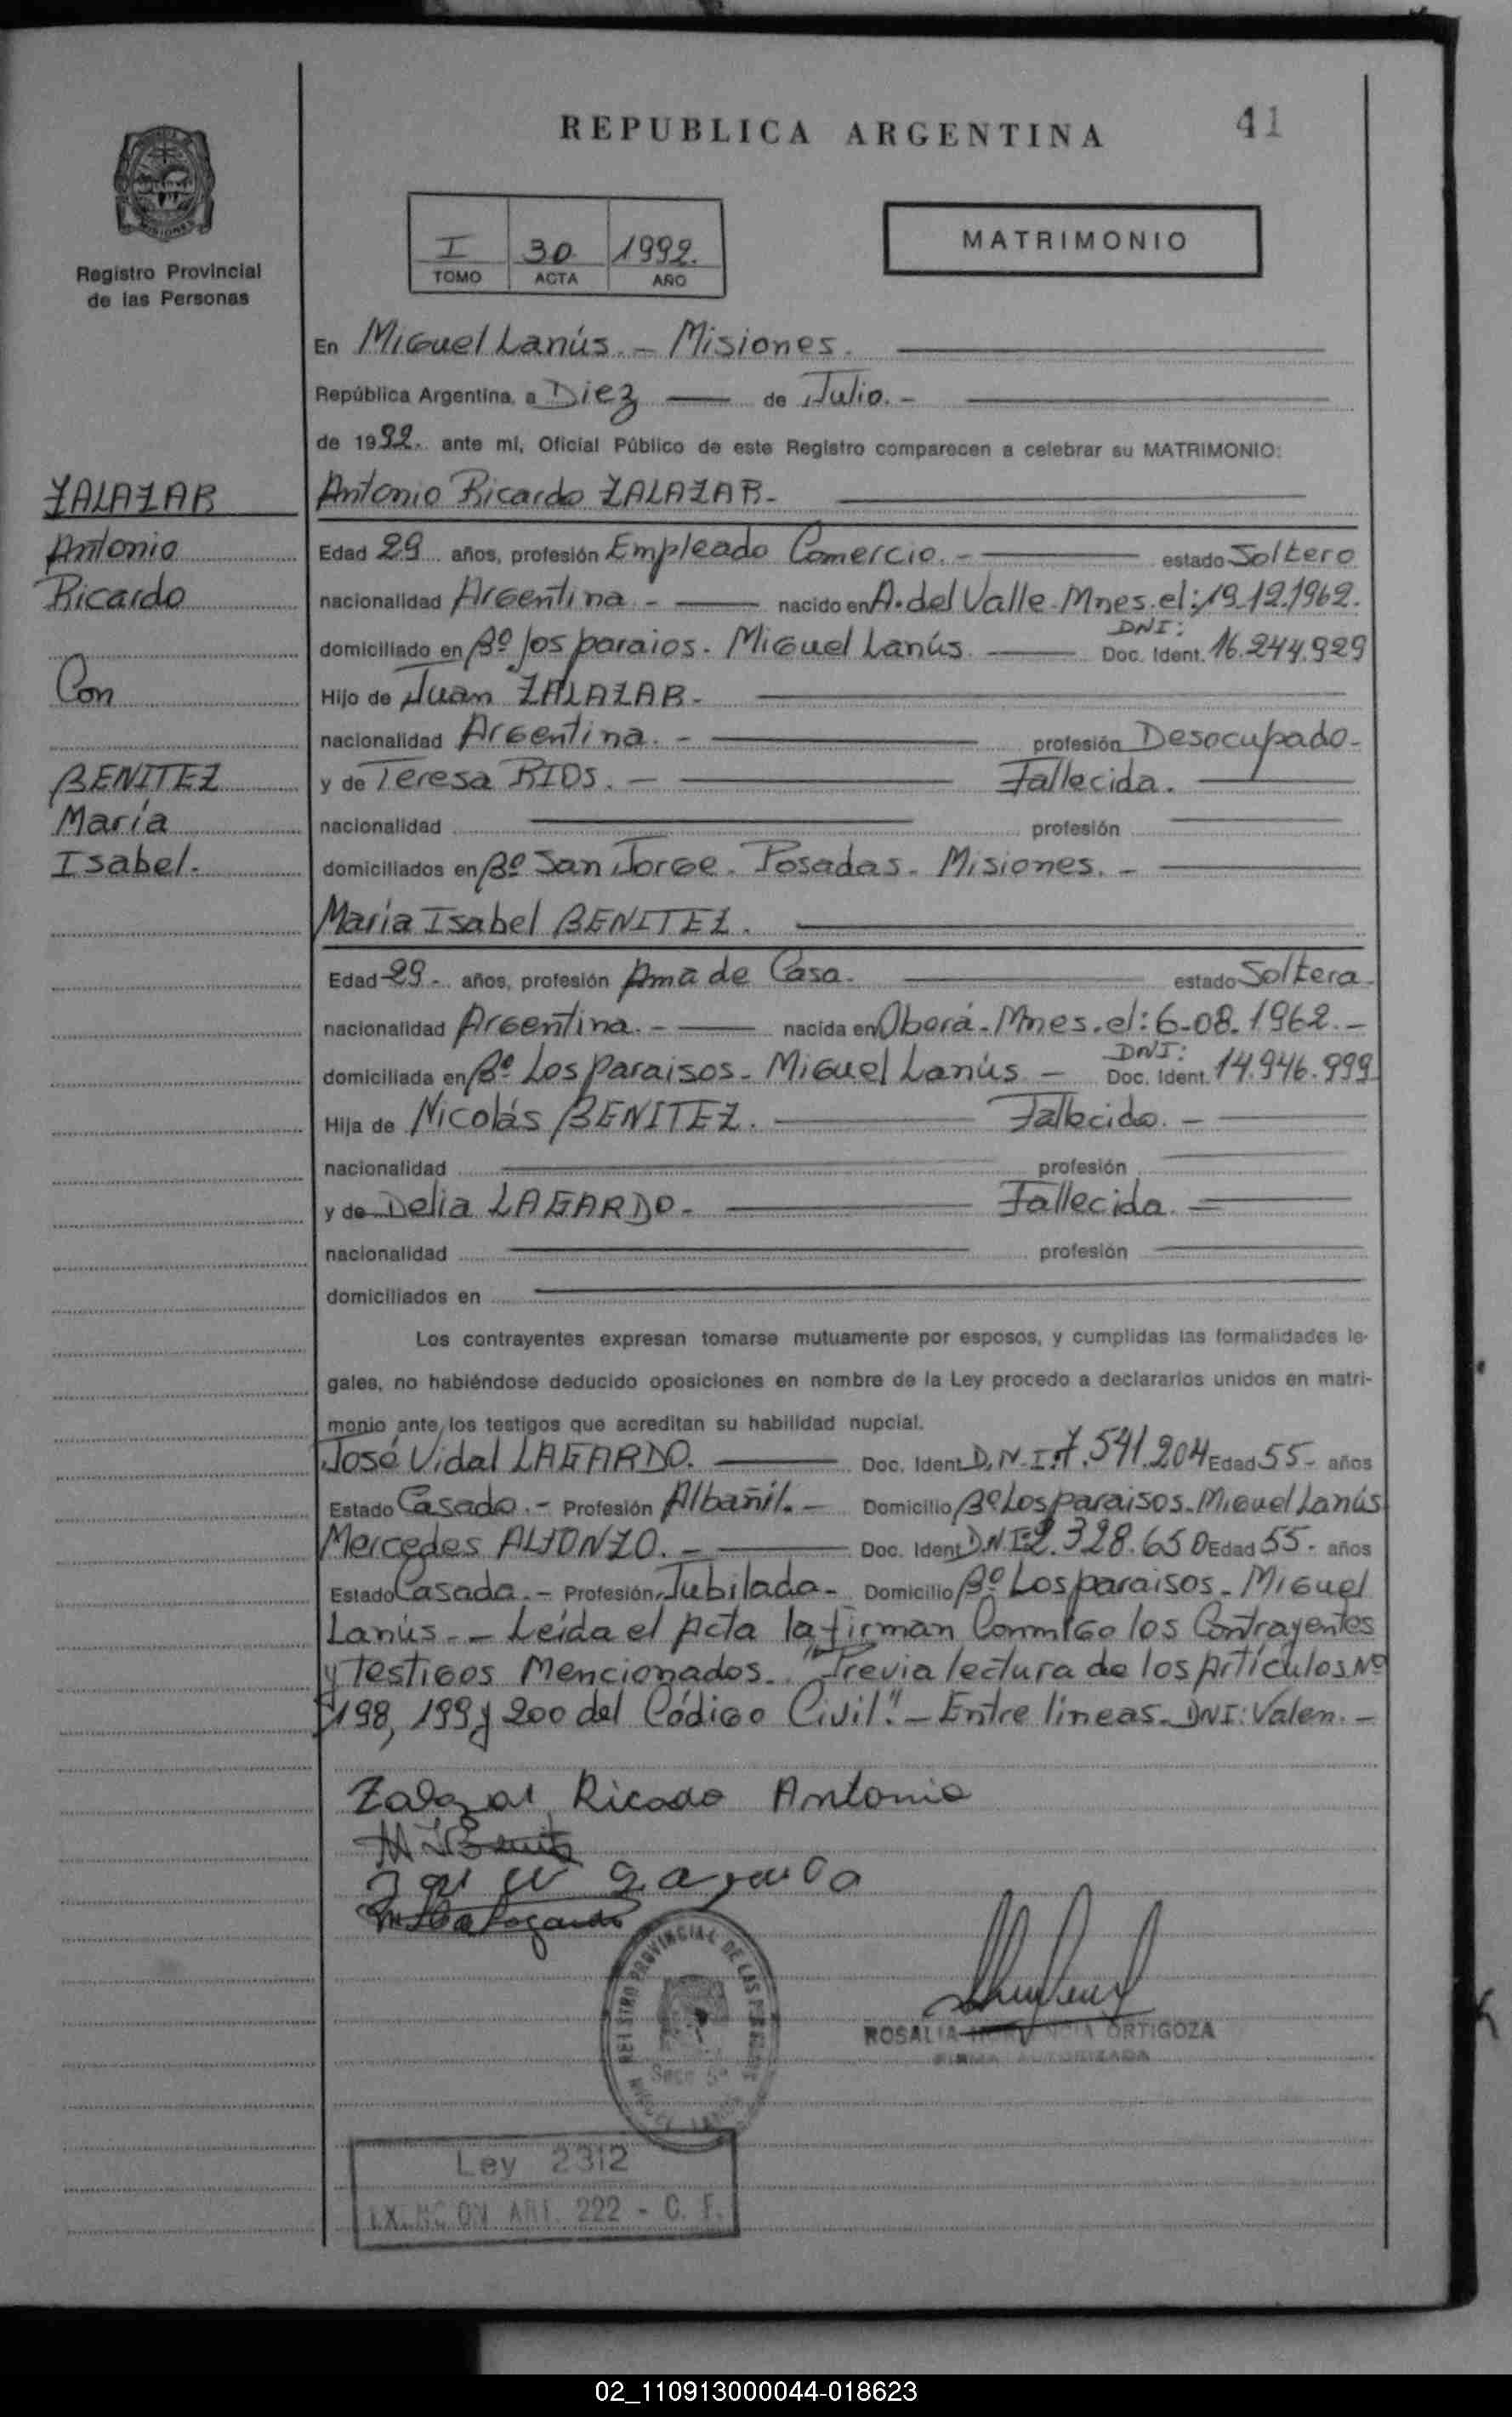 REPUBLICA ARGENTINA
41
MISIONES
Registro Provincial
de las Personas
I 30 1992.
TOMO ACTA AÑO
MATRIMONIO
En Miguel Lanús. - Misiones.
República Argentina, a Diez de Julio. -
de 1992. ante mi, Oficial Público de este Registro comparecen a celebrar su MATRIMONIO:
ZALAZAR
Antonio
Ricardo
Con
BENITEZ
María
Isabel.
Antonio Ricardo ZALAZAR-
Edad 29 años, profesión Empleado Comercio. - estado Soltero
nacionalidad Argentina - nacido en A. del Valle-Mnes. el: 19.12.1962.
DNI:
domiciliado en Bº los paraios. Miguel Lanús Doc. Ident. 16.244.929
Hijo de Juan ZALAZAR-
nacionalidad Argentina. - profesión Desocupado-
y de Teresa RIOS. - Fallecida.
nacionalidad profesión
domiciliados en Bº San Jorge. Posadas. Misiones. -
María Isabel BENITEZ.
Edad 29-. años, profesión Ama de Casa. estado Soltera.
nacionalidad Argentina. - nacida en Oberá-Mnes. el: 6-08.1962.-
DNI:
domiciliada en Bº Los paraisos. Miguel Lanús - Doc. Ident. 14.946.999
Hija de Nicolás BENITEZ. Fallecido. -
nacionalidad profesión
y de Delia LAGARDO- Fallecida. -
nacionalidad profesión
domiciliados en
Los contrayentes expresan tomarse mutuamente por esposos, y cumplidas las formalidades le-
gales, no habiéndose deducido oposiciones en nombre de la Ley procedo a declararlos unidos en matri-
monio ante los testigos que acreditan su habilidad nupcial.
José Vidal LAGARDO. Doc. Ident. D.N.I: 7.541.204 Edad 55- años
Estado Casado. - Profesión Albañil. - Domicilio Bº Los paraisos. Miguel Lanús
Mercedes ALFONZO. - Doc. Ident. D.N.I: 2.328.650 Edad 55- años
Estado Casada. - Profesión Jubilada- Domicilio Bº Los paraisos- Miguel
Lanús. - Leída el Acta la firman Conmigo los Contrayentes
y Testigos Mencionados. "Previa lectura de los Artículos Nº
198, 199 y 200 del Código Civil". - Entre lineas. DNI: Valen. -
Zalazar Ricado Antonio
M I Benitz
REGISTRO PROVINCIAL DE LAS PERSONAS
Secc 5ª
MIGUEL LANUS
ROSALIA ORTIGOZA
FIRMA AUTORIZADA
Ley 2312
EXENCION ART. 222 - C. F.
02_110913000044-018623